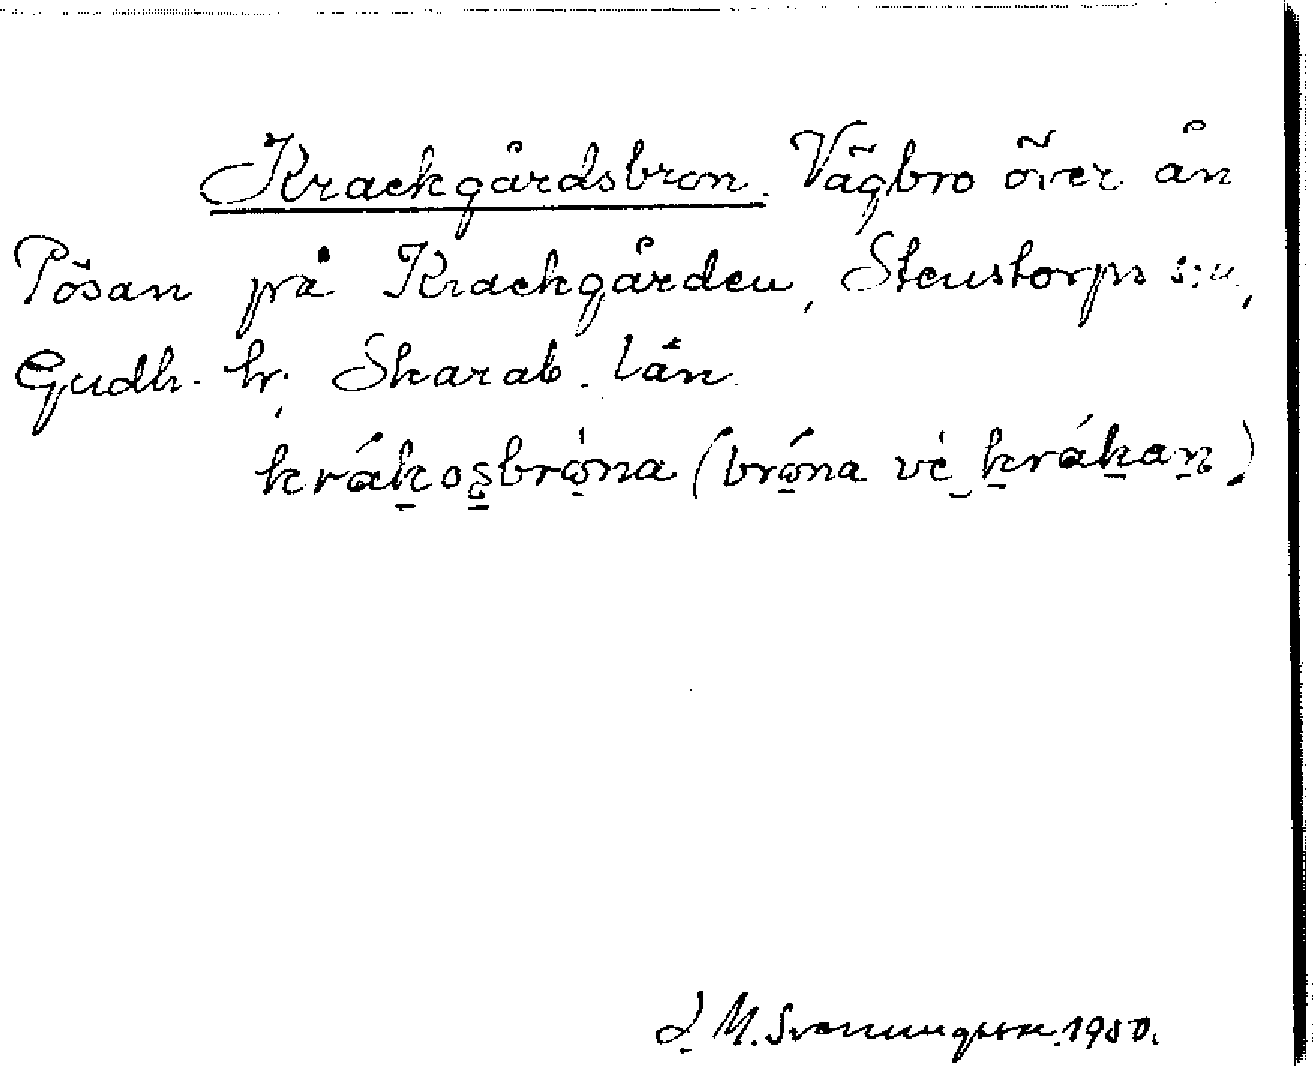 Krackgårdsbron. Vägbro över ån
Pösan på Krackgården, Stenstorps s:n,
Gudh. hr, Skarab. län.
krákos̠brω̇na (brώna vė k̠rák̠an̠)
L. M. Svenungsson. 1950.